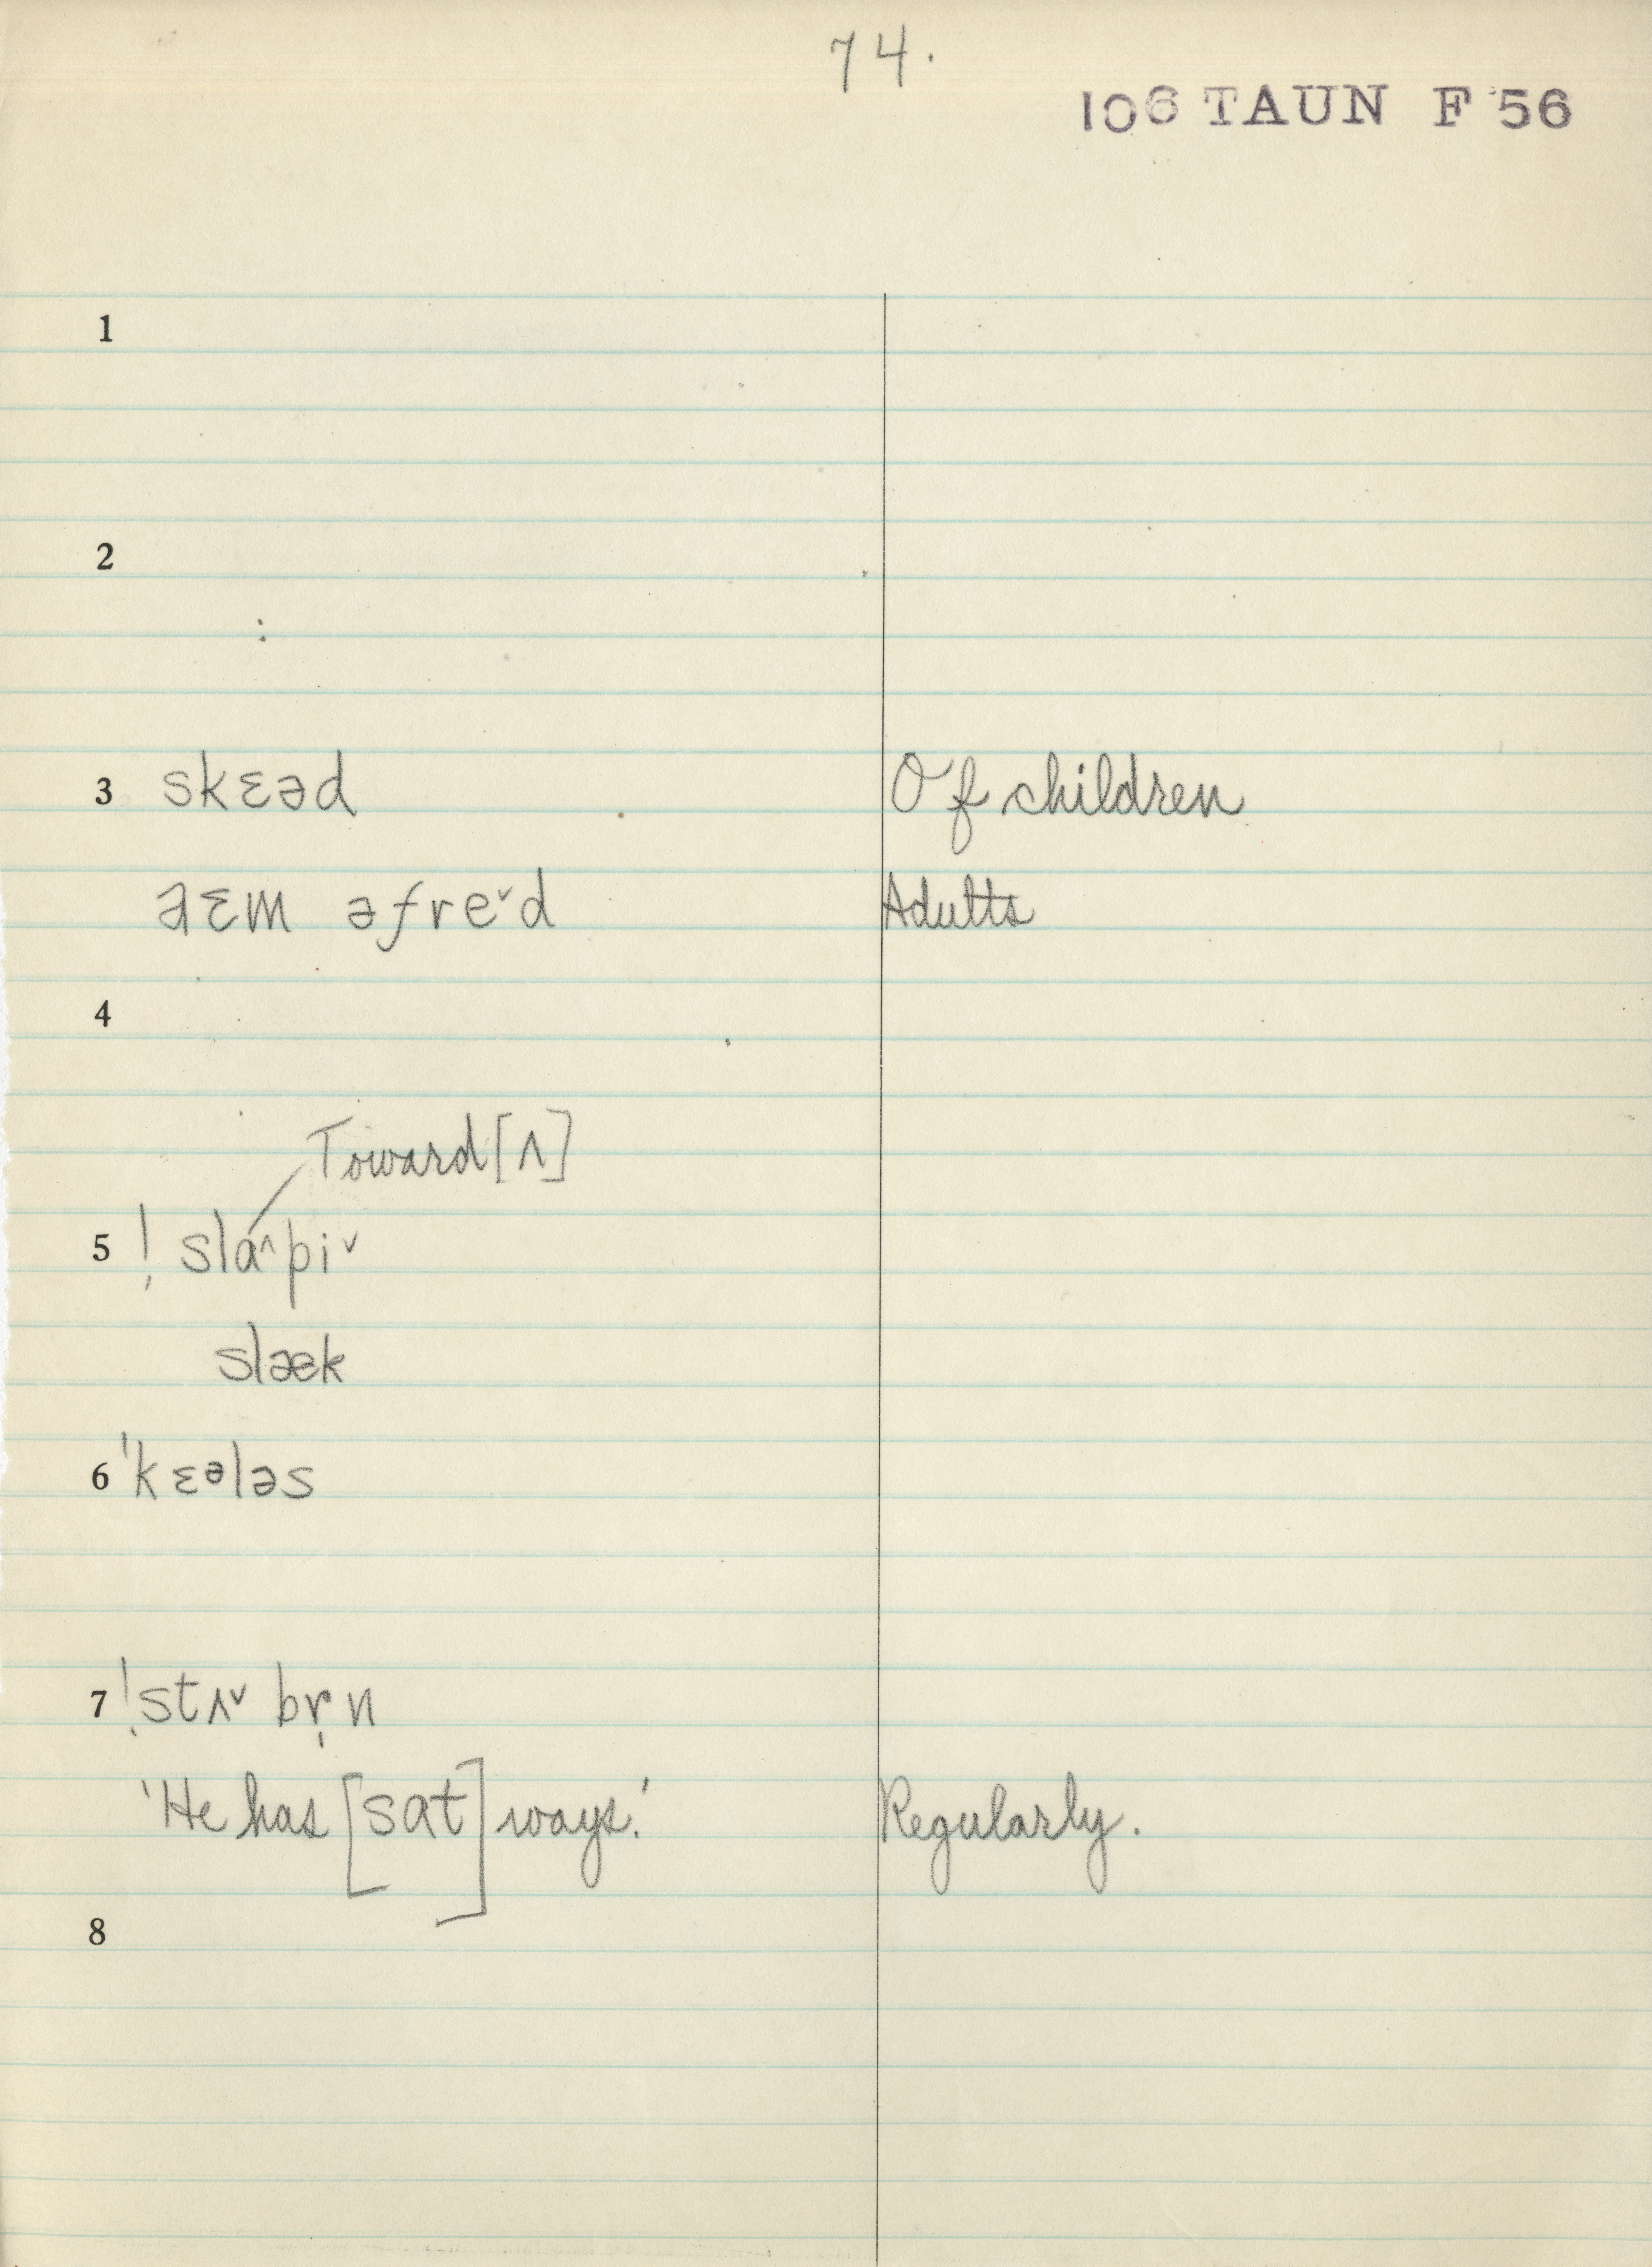 74.
106 TAUN F 56
1
2
3 skɛəd Of children
əɛm əfre˅d Adults
4
Toward [ʌ]
5 ! slɑ^pi˅
slæk
6 'kɛᵊləs
7 !stʌ˅ br̩n
'He has [sat] ways.' Regularly.
8